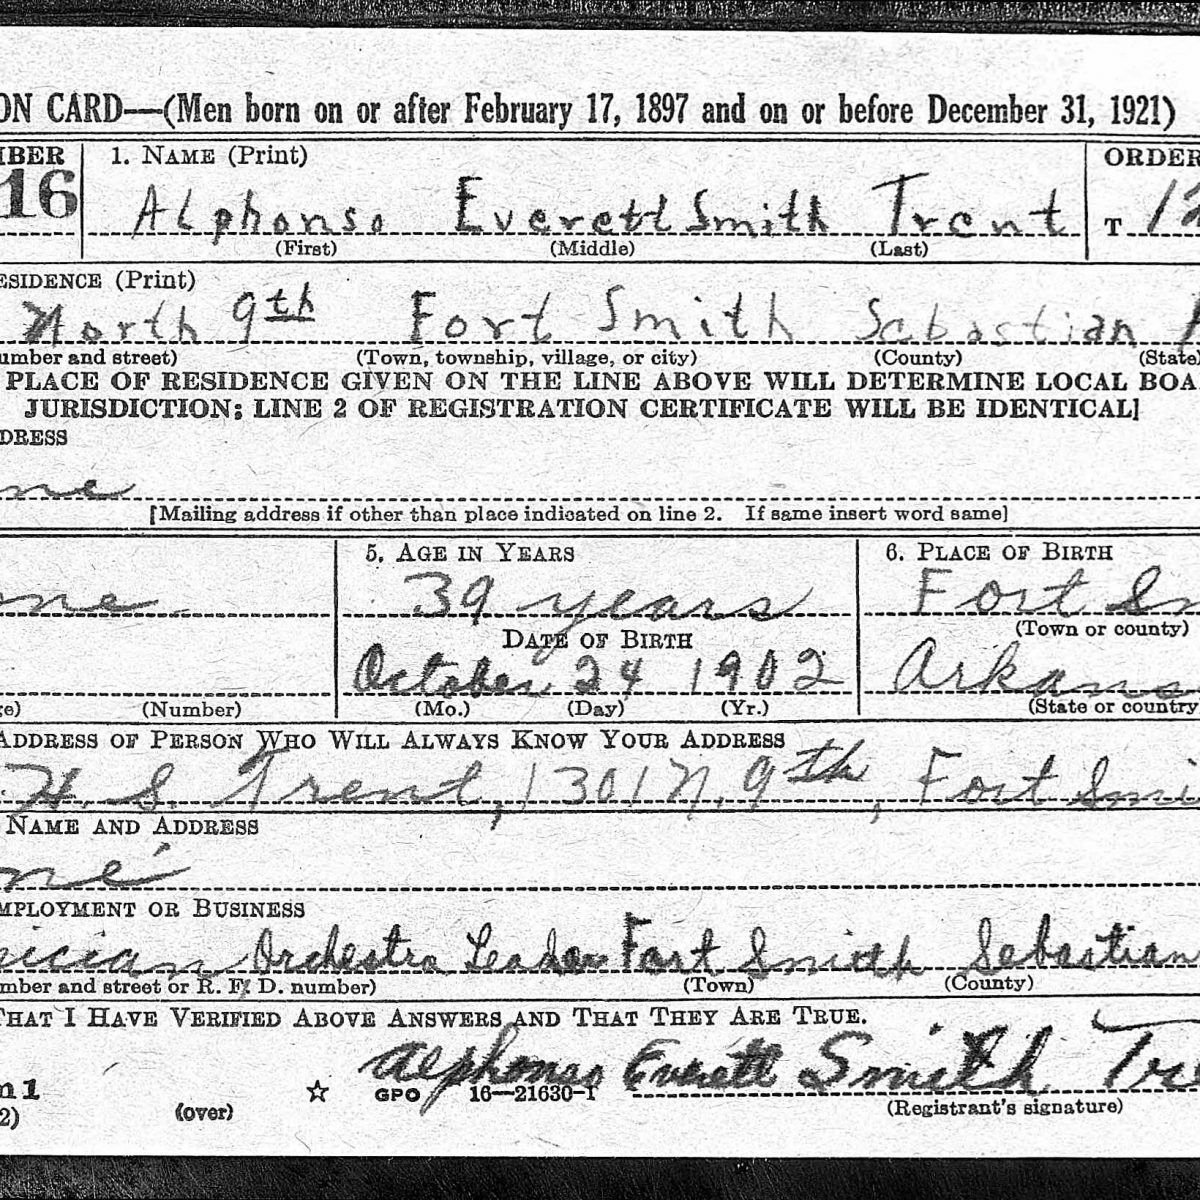 ON CARD—(Men born on or after February 17, 1897 and on or before December 31, 1921)
MBER 1. NAME (Print) ORDER
16 Alphonso Everett Smith Trent T 12
(First) (Middle) (Last)
ESIDENCE (Print)
North 9th Fort Smith Sebastian
umber and street) (Town, township, village, or city) (County) (State)
PLACE OF RESIDENCE GIVEN ON THE LINE ABOVE WILL DETERMINE LOCAL BOA
JURISDICTION; LINE 2 OF REGISTRATION CERTIFICATE WILL BE IDENTICAL]
DRESS
me
[Mailing address if other than place indicated on line 2. If same insert word same]
5. AGE IN YEARS 6. PLACE OF BIRTH
one 39 years Fort Sm
DATE OF BIRTH (Town or county)
October 24 1902 Arkansa
ge) (Number) (Mo.) (Day) (Yr.) (State or country
ADDRESS OF PERSON WHO WILL ALWAYS KNOW YOUR ADDRESS
H. S. Trent, 1301 N. 9th, Fort Smi
NAME AND ADDRESS
ne
MPLOYMENT OR BUSINESS
sician Orchestra Leader Fort Smith Sebastian
mber and street or R. F. D. number) (Town) (County)
THAT I HAVE VERIFIED ABOVE ANSWERS AND THAT THEY ARE TRUE.
Alphonso Everett Smith Tre
m 1 GPO 16—21630-1
2) (over) (Registrant's signature)